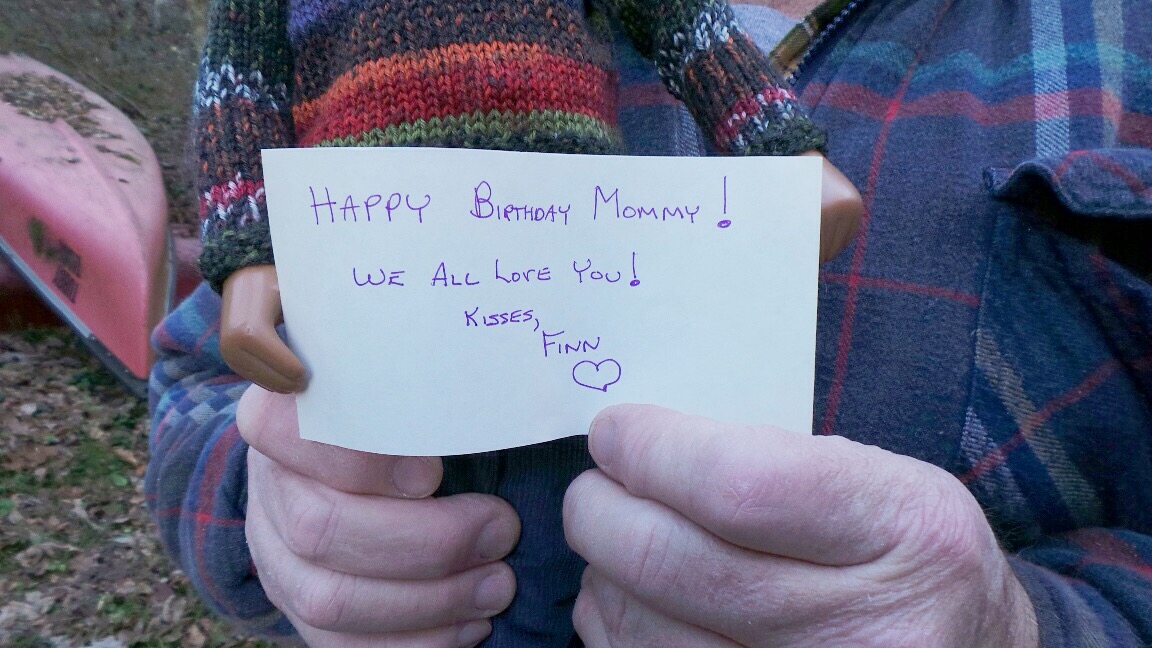 HAPPY BIRTHDAY MOMMY!
WE ALL LOVE YOU!
KISSES,
FINN